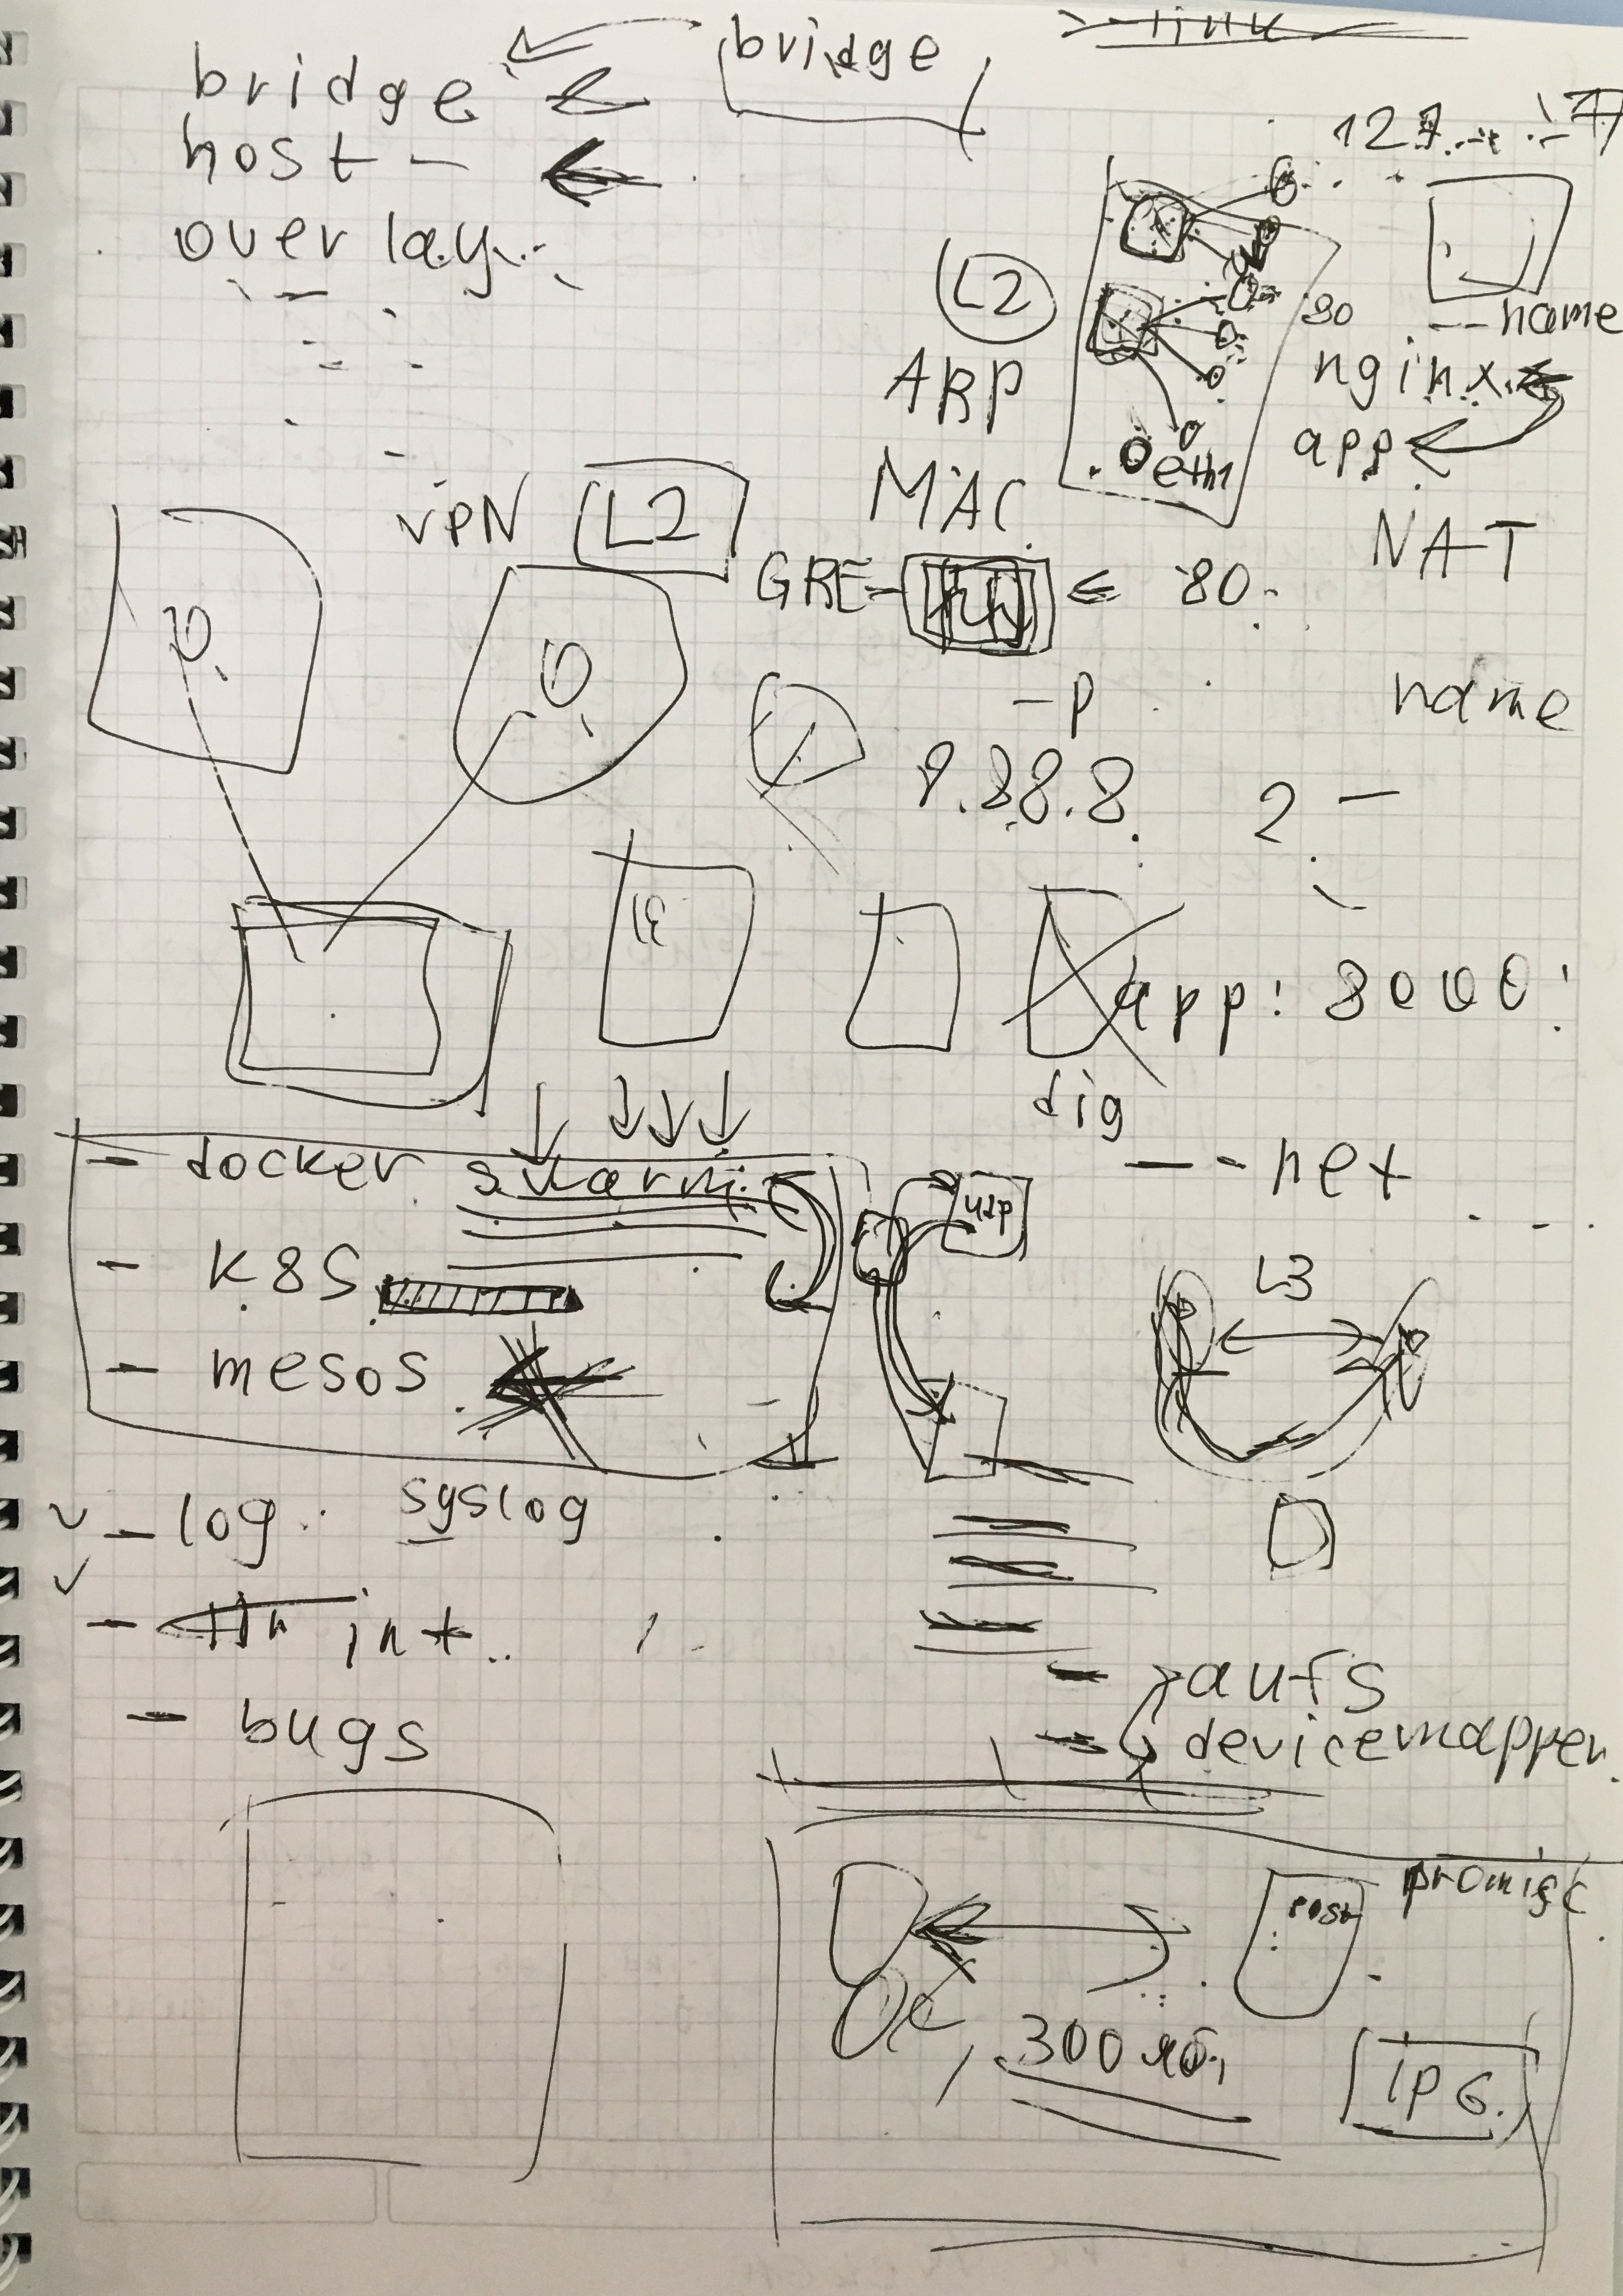 bridge
bridge
host -
overlay
L2
ARP
MAC
eth1
80
--name
nginx
app
NAT
VPN L2
GRE-
80
-p
name
8.8.8.8
2 -
app: 8000
dig
--net
- docker swarm
- k8s
- mesos
L3
- log syslog
- int
- bugs
- aufs
- devicemapper
promisc
300